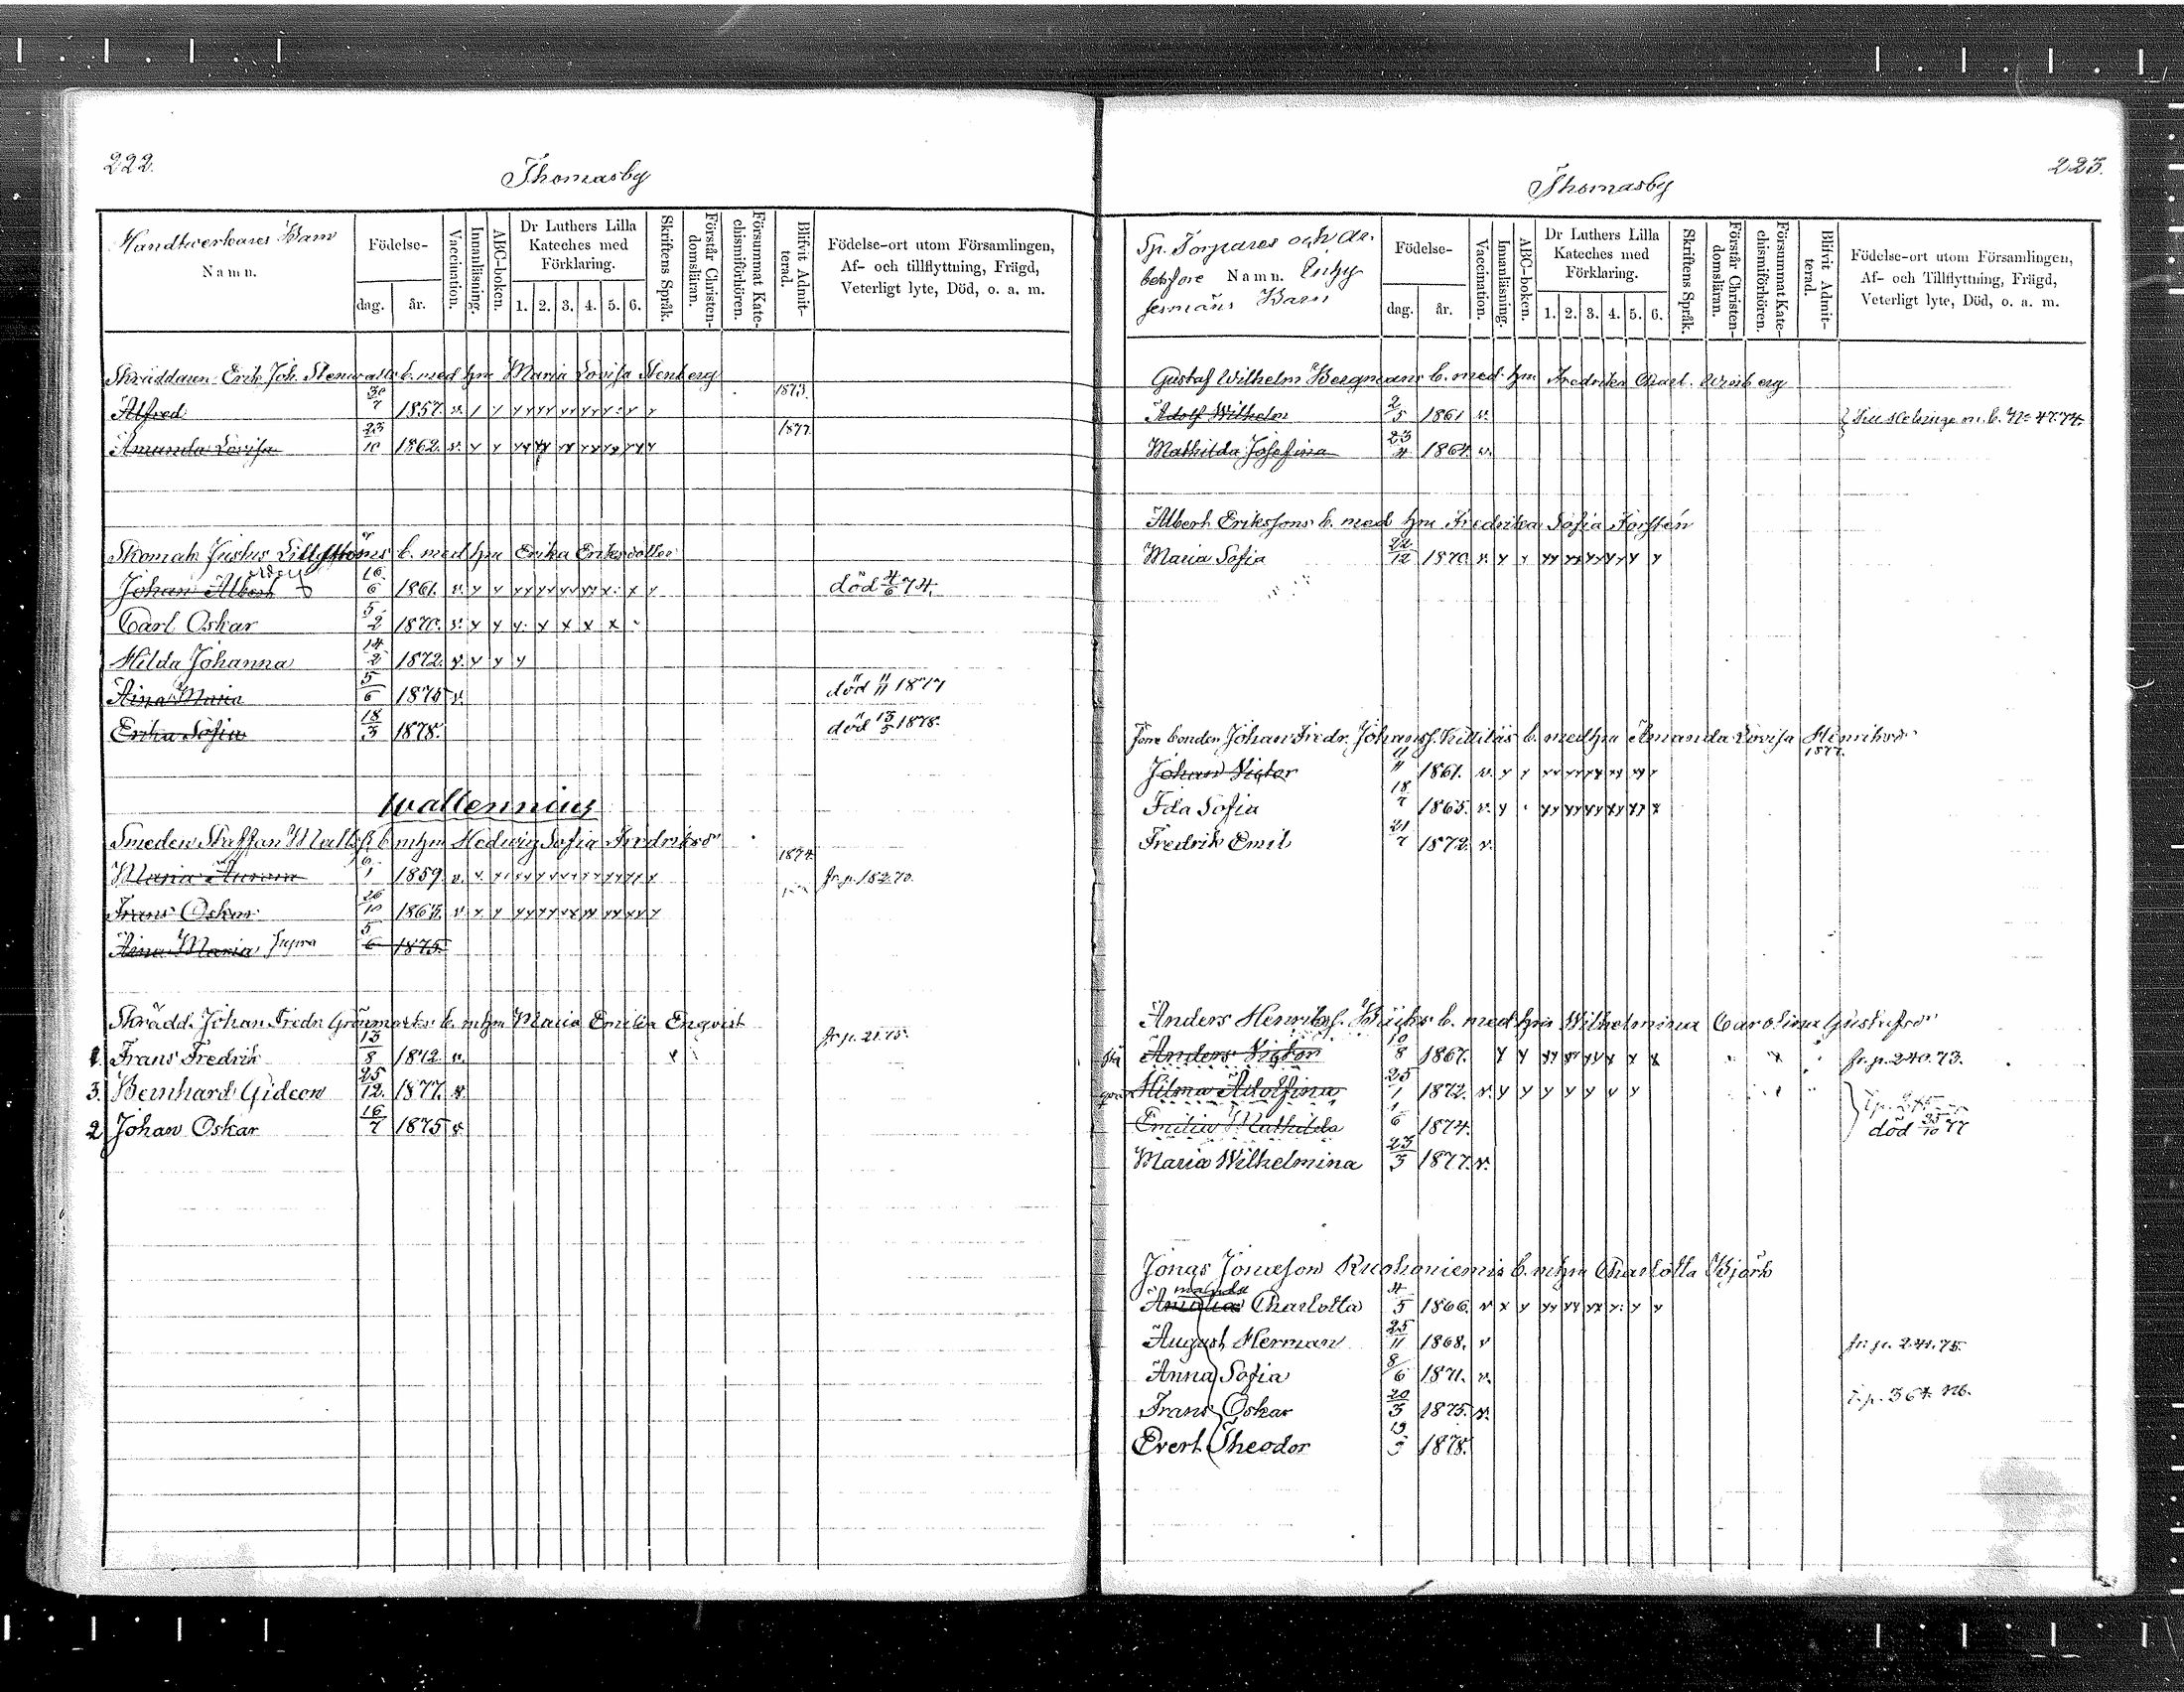 222.
Thomasby
Handtverkares Barn
Namn.
Födelse-
dag.
år.
Vaccination.
Innanläsning.
ABC-boken.
Dr Luthers Lilla
Kateches med
Förklaring.
1. 2. 3. 4. 5. 6.
Skriftens Språk.
Förstår Christen-
domsläran.
Försummat Kate-
chismiförhören.
Blifvit Admit-
terad.
Födelse-ort utom Församlingen,
Af- och tillflyttning, Frägd,
Veterligt lyte, Död, o. a. m.
Skräddaren Erik Joh. b. med hu Maria Lovisa Stenberg
Alfred 30/7 1857. v. 1873.
Amanda Lovisa 23/10 1862. v. 1877.
Skomak. Justus b. med hu Erika Eriksdotter
Johan Albert 16/6 1861. v. död 4/6 74.
Carl Oskar 5/2 1870. v.
Hilda Johanna 14/2 1872. v.
Aina Maria 5/6 1875 v. död 11/11 1877
Erika Sofia 18/3 1878. död 13/5 1878.
Wallennius
Smeden Staffan b. m hu Hedvig Sofia Fredriksdr
Maria Aurora 6/1 1859 v. 1874 fr. p. 182.70.
Frans Oskar 26/10 v.
Aina Maria 5/6 1875.
Skrädd. Johan Fredr Grönmarks b. m hu Maria Emilia Enqvist
fr. p. 21.75.
1. Frans Fredrik 13/8 1872. v.
3. Bernhard Gideon 25/12. 1877. v.
2 Johan Oskar 16/7 1875 v.
223.
Thomasby
Sp. Torpares och Ar-
betsfore Namn. Inhy
sesmäns Barn
Födelse-
dag.
år.
Vaccination.
Innanläsning.
ABC-boken.
Dr Luthers Lilla
Kateches med
Förklaring.
1. 2. 3. 4. 5. 6.
Skriftens Språk.
Förstår Christen-
domsläran.
Försummat Kate-
chismiförhören.
Blifvit Admit-
terad.
Födelse-ort utom Församlingen,
Af- och Tillflyttning, Frägd,
Veterligt lyte, Död, o. a. m.
Gustaf Wilhelm Bergmans b. med hu Fredrika Charl.
Adolf Wilhelm 2/5 1861 v. Till Helsinge m. b. No 47.74.
Mathilda Josefina 23/4 1864. v.
Albert Erikssons b. med hu Fredrika Sofia Forstén
Maria Sofia 22/12 1870. v.
Förre bonden Johan Fredr. Johanss. Kettiläs b. med hu Amanda Lovisa Henriksdr
Johan Victor 11/11 1861. v. 1877.
Ida Sofia 18/7 1865. v.
Fredrik Emil 21/7 1872. v.
Anders Henrikss. Bäcks b. med hu Wilhelmina Carolina Gustafsdr
Anders Victor 10/8 1867. fr. p. 240.73.
Hilma Adolfina 25/1 1872. v.
Emilia Mathilda 1/6 1874. död 25/10 77
Maria Wilhelmina 23/3 1877. v.
Jonas Jonasson Ruohoniemis b. m hu Charlotta Björk
Amalia Charlotta 4/5 1866. v
August Herman 25/11 1868. v fr. p. 241.75.
Anna Sofia 8/6 1871. v.
Frans Oskar 20/3 1875. v. T. p. 364.
Evert Theodor 1878.